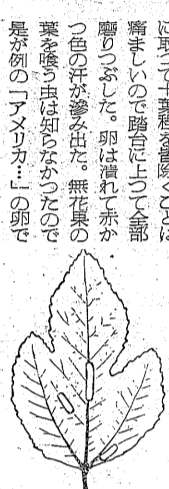 に取って十葉程を皆除くことは
痛ましいので踏台に上つて全部
磨りつぶした。卵は潰れて赤か
つ色の汗が滲み出た。無花果の
葉を喰う虫は知らなかつたので
是が例の「アメリカ…」の卵で